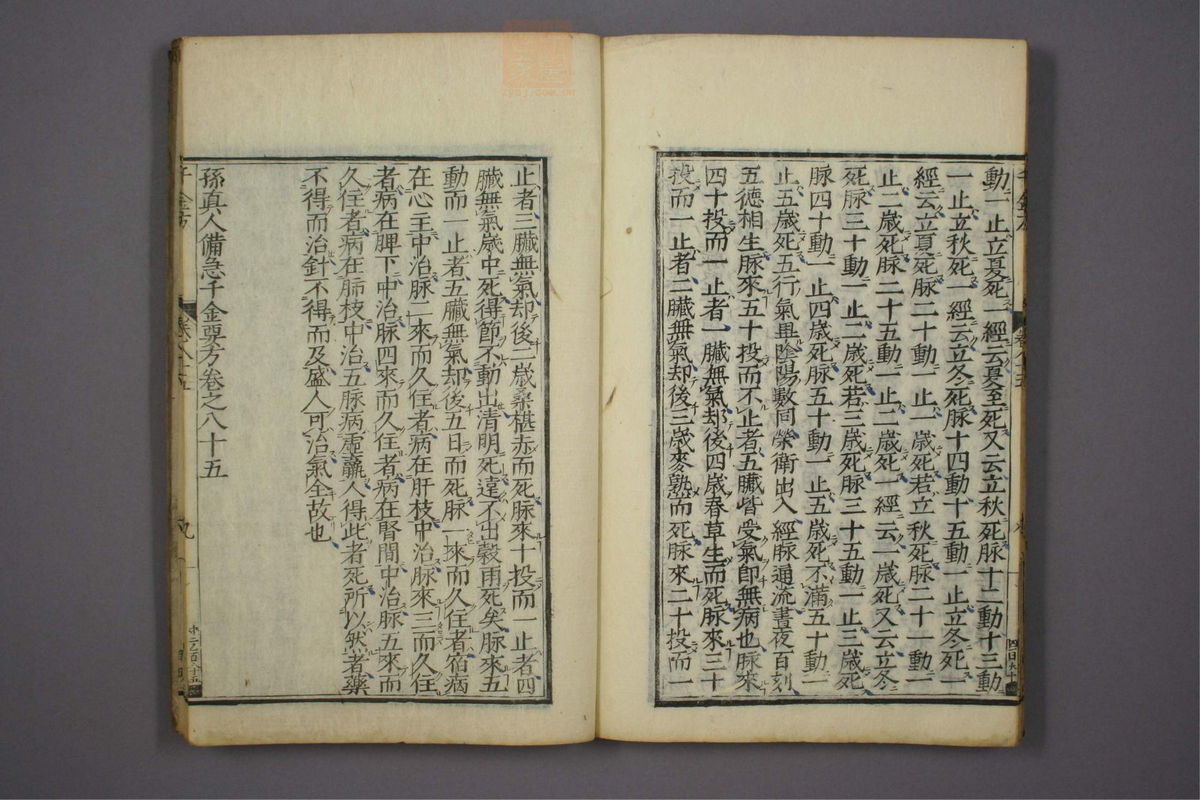 動一止立夏死一經云夏至死又云立秋死脉十二動十三動
一止立秋死一經云立冬死脉十四動十五動一止立冬死一
經云立夏死脉二十動一止一歲死若立秋死脉二十一動一
止二歲死脉二十五動一止二歲死一經云一歲死又云立冬
死脉三十動一止二歲死若三歲死脉三十五動一止三歲死
脉四十動一止四歲死脉五十動一止五歲死不滿五十動一
止五歲死五行氣畢陰陽數同榮衛出入經脉通流晝夜百刻
五德相生脉來五十投而不止者五臟皆受氣即無病也脉來
四十投而一止者一臟無氣却後四歲春草生而死脉來三十
投而一止者二臟無氣却後三歲麥熟而死脉來二十投而一
止者三臟無氣却後二歲桑椹赤而死脉來十投而一止者四
臟無氣歲中死得節不動出清明死遠不出穀雨死矣脉來五
動而一止者五臟無氣却後五日而死脉一來而久住者宿病
在心主中治脉二來而久住者病在肝枝中治脉來三而久住
者病在脾下中治脉四來而久住者病在腎間中治脉五來而
久住者病在肺枝中治五脉病虛羸人得此者死所以然者藥
不得而治針不得而及盛人可治氣全故也
孫真人備急千金要方卷之八十五
千金方
卷八十五
九